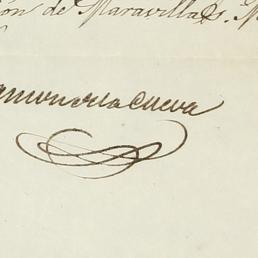 ón de Maravillas.
amon de la Cueva